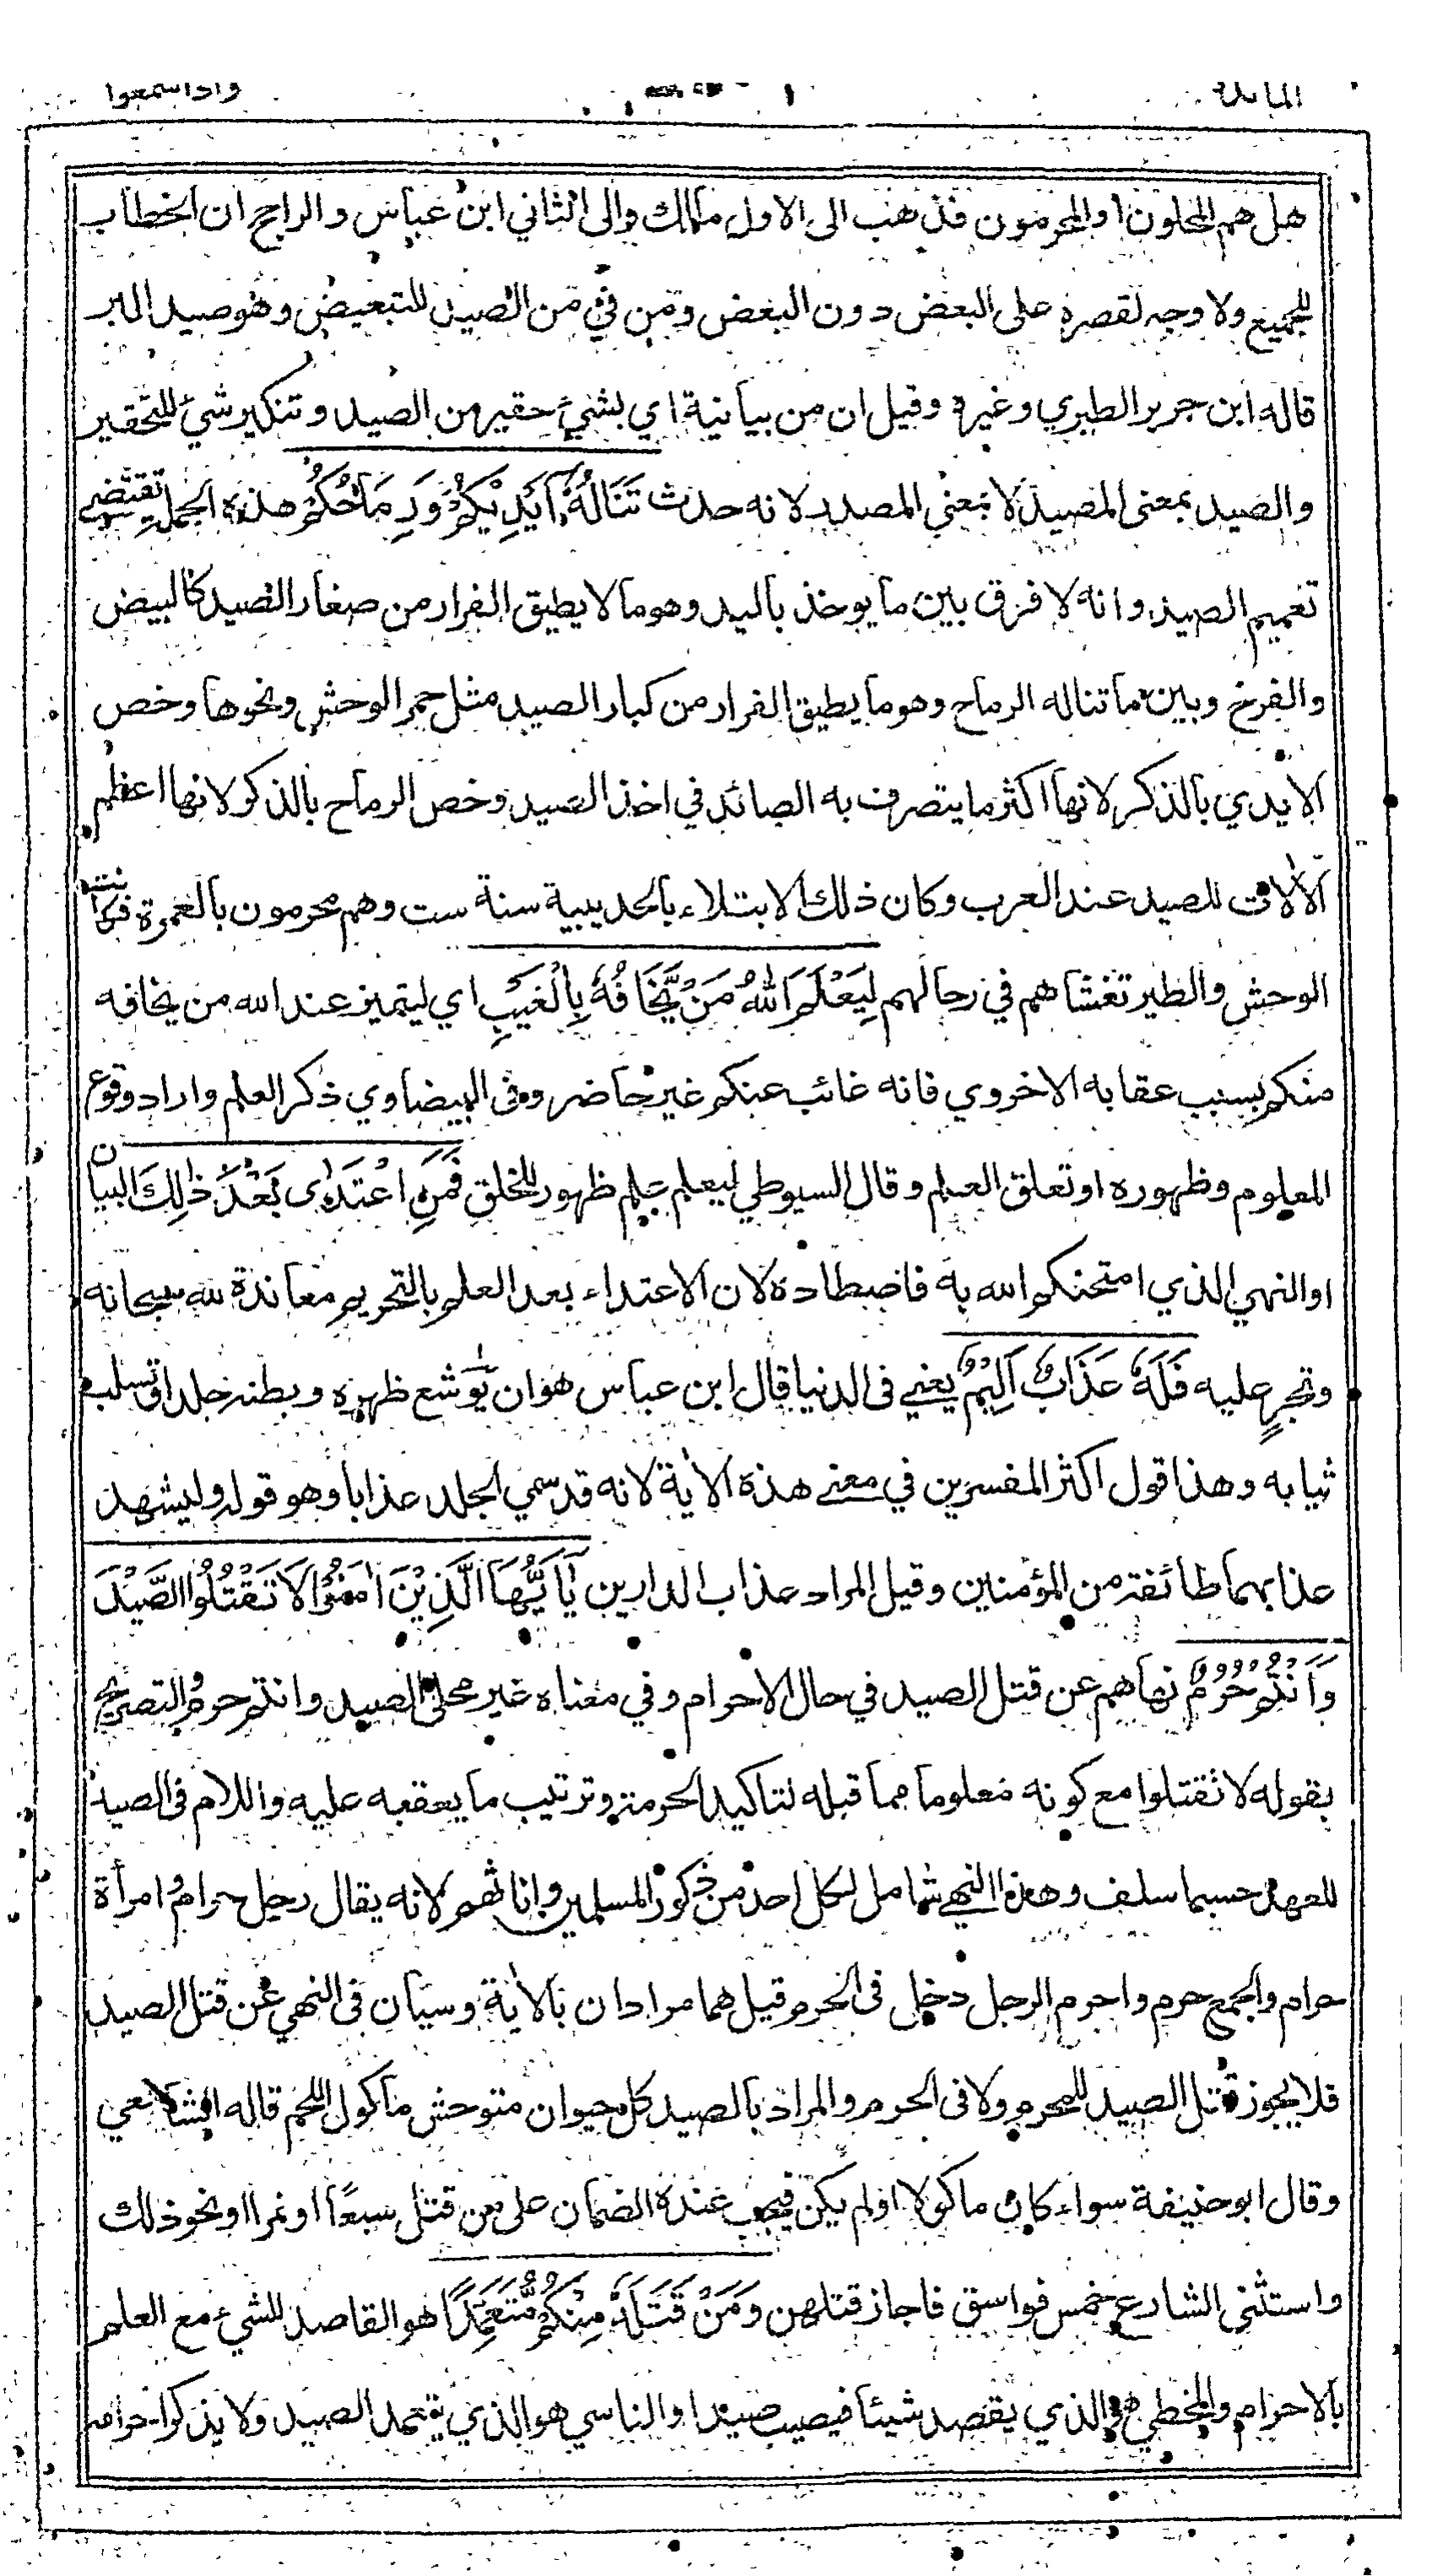 المائدة واذاسمعوا
هل هم المحلون او المحرمون فذهب الى الاول مالك والى الثاني ابن عباس والراجح ان الخطاب
للجميع ولا وجه لقصره على البعض دون البعض ومن في من الصيد للتبعيض وهو صيد البر
قاله ابن جرير الطبري وغيره وقيل ان من بيانية اي بشيئ حقير من الصيد وتنكير شيئ للتحقير
والصيد بمعنى المصيد لا بمعنى المصدر لانه حدث تَنَالُهٗ اَيْدِيْكُمْ وَرِمَاحُكُمْ هذه الجمل تقتضي
تعميم الصيد وانه لا فرق بين ما يوخذ باليد وهو ما لا يطيق الفرار من صغار الصيد كالبيض
والفرخ وبين ما تناله الرماح وهو ما يطيق الفرار من كبار الصيد مثل حمر الوحش ونحوها وخص
الايدي بالذكر لانها اكثر ما يتصرف به الصائد في اخذ الصيد وخص الرماح بالذكر لانها اعظم
الآلات للصيد عند العرب وكان ذلك الابتلاء بالحديبية سنة ست وهم محرمون بالعمرة فكانت
الوحش والطير تغشاهم في رحالهم لِيَعْلَمَ اللهُ مَنْ يَّخَافُهٗ بِالْغَيْبِ اي ليتميز عند الله من يخافه
منكم بسبب عقابه الاخروي فانه غائب عنكم غير حاضر وفى البيضاوي ذكر العلم واراد وقوع
المعلوم وظهوره او تعلق العلم وقال السيوطي ليعلم علم ظهور للخلق فَمَنِ اعْتَدٰى بَعْدَ ذٰلِكَ البيان
او النهي الذي امتحنكم الله به فاصطاده لان الاعتداء بعد العلم بالتحريم معاندة لله سبحانه
وتجرٍ عليه فَلَهٗ عَذَابٌ اَلِيْمٌ يعني فى الدنيا قال ابن عباس هو ان يوشع ظهره وبطنه جلدا وتسلب
ثيابه وهذا قول اكثر المفسرين في معنے هذه الآية لانه قد سمي الجلد عذابا وهو قوله وليشهد
عذابهما طائفة من المؤمنين وقيل المراد عذاب الدارين يٰاَيُّهَا الَّذِيْنَ اٰمَنُوْا لَا تَقْتُلُوا الصَّيْدَ
وَاَنْتُمْ حُرُمٌ نهاهم عن قتل الصيد في حال الاحرام وفي معناه غير محلى الصيد وانتم حرم والتصريح
بقوله لا تقتلوا مع كونه معلوما مما قبله لتاكيد الحرمة وترتيب ما يعقبه عليه واللام فى الصيد
للعهد حسبما سلف وهذا النهي شامل لكل احد من ذكور المسلمين واناثهم لانه يقال رجل حرام وامرأة
حرام والجمع حرم واحرم الرجل دخل فى الحرم قيل هما مرادان بالآية وسيان فى النهي عن قتل الصيد
فلا يجوز قتل الصيد للمحرم ولا فى الحرم والمراد بالصيد كل حيوان متوحش ماكول اللحم قاله الشافعي
وقال ابو حنيفة سواء كان ماكولا او لم يكن فيجب عنده الضمان على من قتل سبعًا او نمرا او نحو ذلك
واستثنى الشارع خمس فواسق فاجاز قتلهن وَمَنْ قَتَلَهٗ مِنْكُمْ مُّتَعَمِّدًا هو القاصد للشيء مع العلم
بالاحرام والمخطي هو الذي يقصد شيئا فيصيب صيدا والناسي هو الذي يتعمد الصيد ولا يذكر احرامه